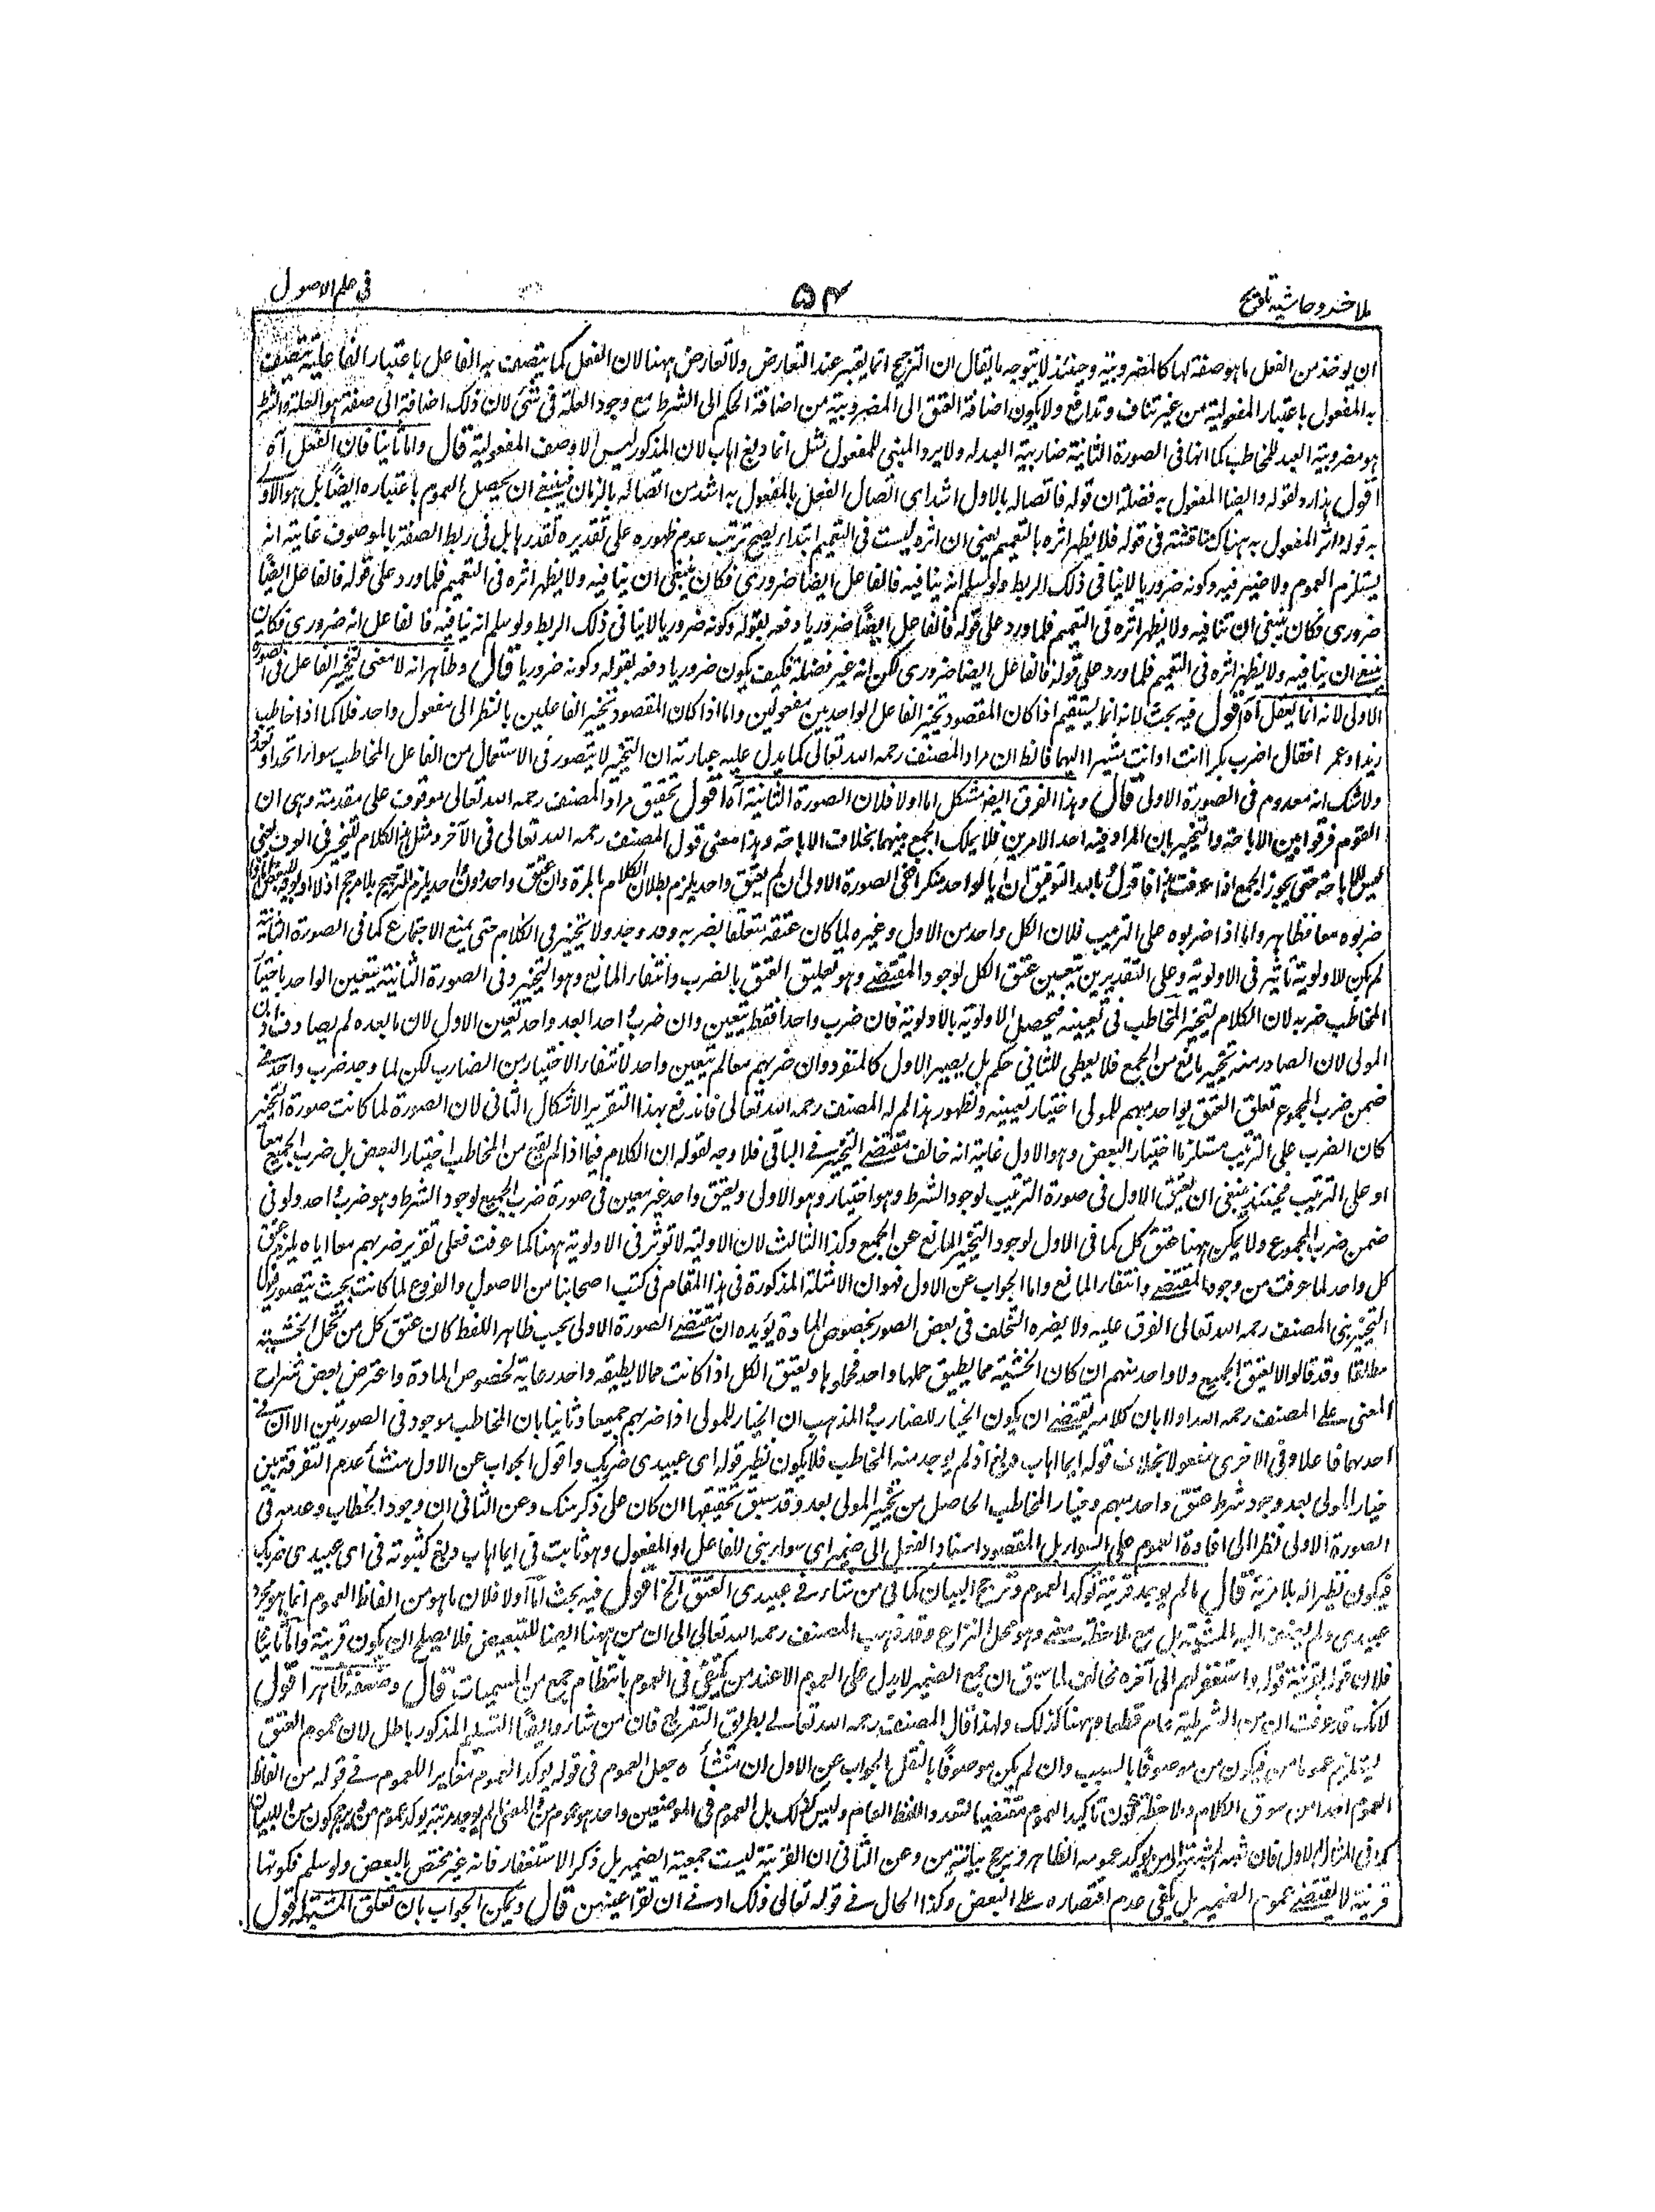 ملا خسرو حاشيه تلويح
٥٤
فى علم الاصول
ان يوخذ من الفعل ما هو صفة لها كالمضروبية وحينئذ لا يتوجه ما يقال ان الترجيح انما يعتبر عند التعارض ولا تعارض ههنا لان الفعل كما يتصف به الفاعل باعتبار الفاعلية يتصف
به المفعول باعتبار المفعولية من غير تناف وتدافع ولا يكون اضافة العتق الى المضروبية من اضافة الحكم الى الشرط مع وجود العلة فى شئ لان ذلك اضافة الى صفة هو العلة والشرط
هو مضروبية العبد للمخاطب كما انها فى الصورة الثانية ضاربية العبد له ولا يرد المبنى للمفعول مثل ايما اهاب دبغ لان المذكور ليس الا وصف المفعولية قال واما ثانيا فان الفعل آه
اقول هذا رد لقوله وايضا المفعول به فضلة ان قوله فاتصاله بالاول اشد اى اتصال الفعل بالمفعول به اشد من اتصاله بالزمان فينبغى ان يحصل العموم باعتباره ايضا بل هو الاولى
به قوله واثر المفعول به ههنا مناقشة فى قوله فلا يظهر اثره بالتعميم يعنى ان اثره ليست فى التعميم ابتداء ليصح ترتب عدم ظهوره على تقديره تقدرها بل فى ربط الصفة بالموصوف غايته انه
يستلزم العموم ولا ضير فيه وكونه ضروريا لا ينافى ذلك الربط ولو سلم انه ينافيه فالفاعل ايضا ضرورى فكان ينبغى ان ينافيه ولا يظهر اثره فى التعميم فلما ورد على قوله فالفاعل ايضا
ضرورى فكان ينبغى ان تنافيه ولا يظهر اثره فى التعميم فلما ورد على قوله فالفاعل ايضا ضروريا دفعه بقوله وكونه ضروريا لا ينافى ذلك الربط ولو سلم انه ينافيه فالفاعل انه ضرورى فكان
ينبغى ان ينافيه ولا يظهر اثره فى التعميم فلما ورد على قوله فالفاعل ايضا ضرورى لكن انه غير فضلة فكيف يكون ضروريا دفعه بقوله وكونه ضروريا قال وظاهر انه لا معنى لتخيير الفاعل فى الصورة
الاولى لانه انما يعقل آه اقول فيه بحث لانه انما يستقيم اذا كان المقصود تخيير الفاعل الواحد بين مفعولين واما اذا كان المقصود تخيير الفاعلين بالنظر الى مفعول واحد فلا كما اذا خاطب
زيدا وعمرا فقال اضرب بكرا انت او انت مشيرا اليهما فالظ ان مراد المصنف رحمه الله تعالى كما يدل عليه عبارته ان التخيير لا يتصور فى الاستعمال من الفاعل المخاطب سواء اتحد او تعدد
ولا شك انه معدوم فى الصورة الاولى قال وهذا الفرق ايضا مشكل اما اولا فلان الصورة الثانية آه اقول تحقيق مراد المصنف رحمه الله تعالى موقوف على مقدمة وهى ان
القوم فرقوا بين الاباحة والتخيير بان المراد فيه احد الامرين فلا يملك الجمع بينهما بخلاف الاباحة وهذا معنى قول المصنف رحمه الله تعالى فى الآخر ومثل هذا الكلام لتخيير فى العرف يعنى
ليس للاباحة حتى يجوز الجمع اذا عرفت هذا فاقول بالله التوفيق ان الواحد منكر ففى الصورة الاولى ان لم يعتق واحد يلزم بطلان الكلام بالمرة وان عتق واحد دون احد يلزم الترجيح بلا مرجح اذ لا اولوية
ضربوه معا فظاهر واما اذا ضربوه على الترتيب فلان الكل واحد من الاول وغيره لما كان عتقه متعلقا بضربه وقد وجد ولا تخيير فى الكلام حتى يمنع الاجتماع كما فى الصورة الثانية
لم يكن للاولوية تأثير فى الاولوية وعلى التقديرين يتعين عتق الكل لوجود المقتضى وهو تعليق العتق بالضرب وانتفاء المانع وهو التخيير وفى الصورة الثانية يتعين الواحد باختيار
المخاطب ضربه لان الكلام لتخيير المخاطب فى تعيينه فيحصل الاولوية بالاولوية فان ضرب واحدا فقط يتعين وان ضرب احدا بعد واحد تعين الاول لان ما بعده لم يصادف اذن
المولى لان الصادر منه تخيير مانع من الجمع فلا يعطى للثانى حكم بل يصير الاول كالمنفرد وان ضربهم معا لم يتعين واحد لانتفاء الاختيار من الضارب لكن لما وجد ضرب واحد فى
ضمن ضرب المجموع تعلق العتق بواحد مبهم للمولى اختيار تعيينه ولظهور هذا لم له المصنف رحمه الله تعالى فاندفع بهذا التقرير الاشكال الثانى لان الصورة لما كانت صورة التخيير
كان الضرب على الترتيب مستلزما اختيار البعض وهو الاول غايته انه خالف مقتضى التخيير فى الباقى فلا وجه لقوله ان الكلام فيما اذا لم يقع من المخاطب اختيار البعض بل ضرب الجميع معا
او على الترتيب فحينئذ ينبغى ان يعتق الاول فى صورة الترتيب لوجود الشرط وهو اختياره وهو الاولى ويعتق واحد غير معين فى صورة ضرب الجميع لوجود الشرط وهو ضرب احد ولو فى
ضمن ضرب المجموع ولا يمكن ههنا عتق كل كما فى الاول لوجود التخيير المانع عن الجمع وكذا الثالث لان الاولية لا تؤثر فى الاولوية ههنا كما عرفت فعلى تقدير ضربهم معا اياه يلزم عتق
كل واحد لما عرفت من وجود المقتضى وانتفاء المانع واما الجواب عن الاول فهو ان الامثلة المذكورة فى هذا المقام فى كتب اصحابنا من الاصول والفروع لما كانت بحيث يتصور فيها
التخيير بنى المصنف رحمه الله تعالى الفرق عليه ولا يضره التخلف فى بعض الصور بخصوص المادة يؤيده ان مقتضى الصورة الاولى بحسب ظاهر اللفظ كان عتق كل من تحمل الخشبة
مطلقا وقد قالوا لا يعتق الجميع ولا واحد منهم ان كان الخشبة مما يطيق حملها واحد فحملوها ويعتق الكل اذا كانت مما لا يطيقه واحد رعاية لخصوص المادة واعترض بعض شراح
المغنى على المصنف رحمه الله اولا بان كلامه يقتضى ان يكون الخيار للضارب والمذهب ان الخيار للمولى اذا ضربهم جميعا وثانيا بان المخاطب موجود فى الصورتين الا ان فى
احدهما فاعلا وفى الاخرى مفعولا بخلاف قوله ايما اهاب دبغ اذ لم يوجد منه المخاطب فلا يكون نظير قوله اى عبيدى ضربك واقول الجواب عن الاول منشأ عدم التفرقة بين
خيار المولى بعد وجود شرط عتق واحد مبهم وخيار المخاطب الحاصل من تخيير المولى بعد وقد سبق تحقيقها ان كان على ذكر منك وعن الثانى ان وجود الخطاب وعدمه فى
الصورة الاولى نظرا الى افادة العموم على السواء بل المقصود اسناد الفعل الى ضمير اى سواء بنى للفاعل او المفعول وهو ثابت فى ايما اهاب دبغ كثبوته فى اى عبيدى ضربك
فيكون نظيرا له بلا مزية قال ما لم يوجد قرينة تؤكد العموم وترجح البيان كما فى من شاء فى عبيدى العتق الخ اقول فيه بحث اما اولا فلان ما هو من الفاظ العموم انما هو مجرد
عبيدى ولم يضف اليه المشية بل مع ملاحظة من وهو محل النزاع وقد ذهب المصنف رحمه الله تعالى الى ان من ههنا ايضا للتبعيض فلا يصلح ان يكون قرينة واما ثانيا
فلان قوله بقرينة قوله واستغفر لهم الى آخره مخالف لما سبق ان جمع الضمير لا يدل على العموم الا عند من يكتفى فى العموم بانتظام جمع من المسميات قال وضعفه ظاهر اقول
لانك قد عرفت ان من الشرطية عام قطعا وههنا كذلك ولهذا قال المصنف رحمه الله تعالى بطريق التفريع فان من شاء وايضا التسليم المذكور باطل لان عموم العتق
يستلزم عموم من فيكون من موصوفا بالسبب وان لم يكن موصوفا بالفعل الجواب عن الاول ان منشأه جعل العموم فى قوله يؤكد العموم مغايرا للعموم فى قوله من الفاظ
العموم من سوق الكلام وملاحظة كون تأكيد العموم مقتضيا لتعدد اللفظ العام وليس كذلك بل العموم فى الموضعين واحد هو عموم من والمعنى ما لم يوجد قرينة يؤكد عموم من ويرجح كون من للبيان
كما فى المثال الاول فان نسبة المشية الى من يؤكد عمومه الظاهر ويرجح بيانية من وعن الثانى ان القرينة ليست جمعية الضمير بل ذكر الاستغفار فانه غير مختص بالبعض ولو سلم فكونها
قرينة لا يقتضى عموم الضمير بل يكفى عدم اقتصاره على البعض وكذا الحال فى قوله تعالى ذلك ادنى ان تقر اعينهن قال ويمكن الجواب بان تعلق المشية آه اقول